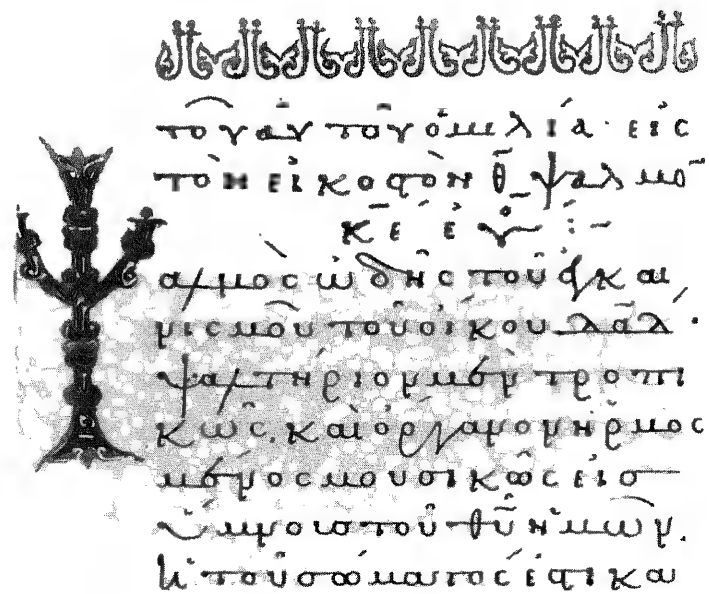 τοῦ αὐτοῦ ὁμιλία· εἰς
τὸν εἰκοστὸν θ̄ ψαλμὸ
κ̅ε̅ εὐ :~
Ψαλμὸς ὠδῆς τοῦ ἐγκαι
νισμοῦ τοῦ οἴκου δ̅α̅δ̅.
ψαλτήριον μὲν τροπι
κῶς. καὶ ὄργανον ἡρμοσ
μένον μουσικῶς εἰσ
ὕμνους τοῦ θ̅υ̅ ἡμῶν.
ἡ τοῦ σώματος ἐστι κα